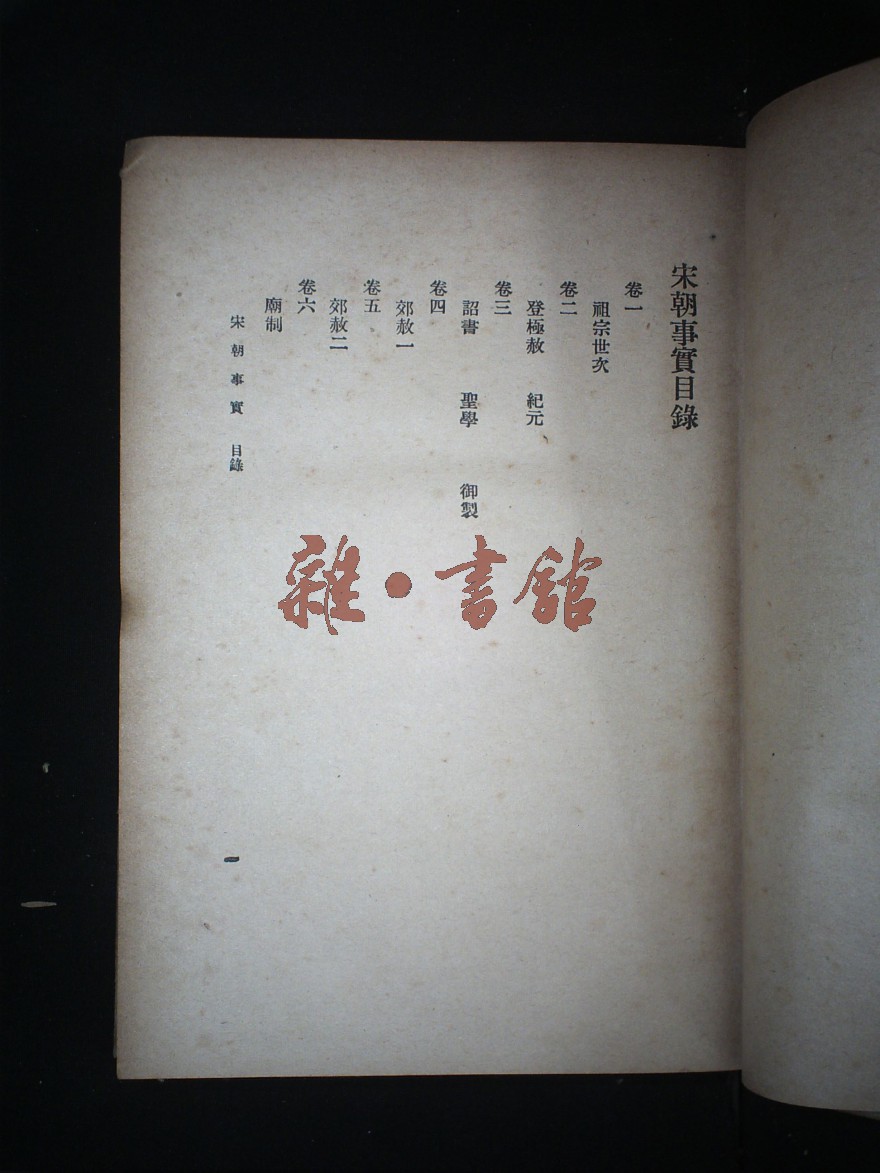 宋朝事實目錄
卷一
祖宗世次
卷二
登極赦 紀元
卷三
詔書 聖學 御製
卷四
郊赦一
卷五
郊赦二
卷六
廟制
宋朝事實 目錄
一
雜·書館